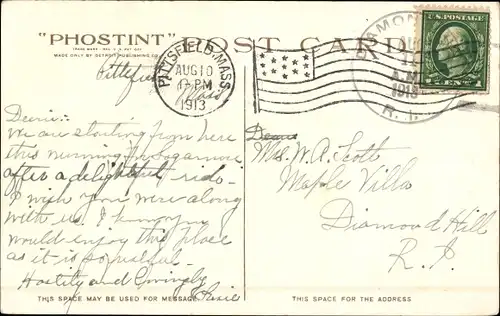 "PHOSTINT" POST CARD
MADE ONLY BY DETROIT PUBLISHING CO.
PITTSFIELD, MASS.
AUG 10
PM
1913
DIAMOND
AUG
A.M.
1913
R.I.
U.S. POSTAGE
1 CENT 1
Pittsfield
Mass
Dearie:-
We are starting from here
this morning for Sagamore
after a delightful ride.
I wish you were along
with us. I know you
would enjoy this place
as it is so restful.
Hastily and lovingly
Elsie
Dear
Mrs. W. A. Scott
Maple Villa
Diamond Hill
R.I.
THIS SPACE MAY BE USED FOR MESSAGE
THIS SPACE FOR THE ADDRESS